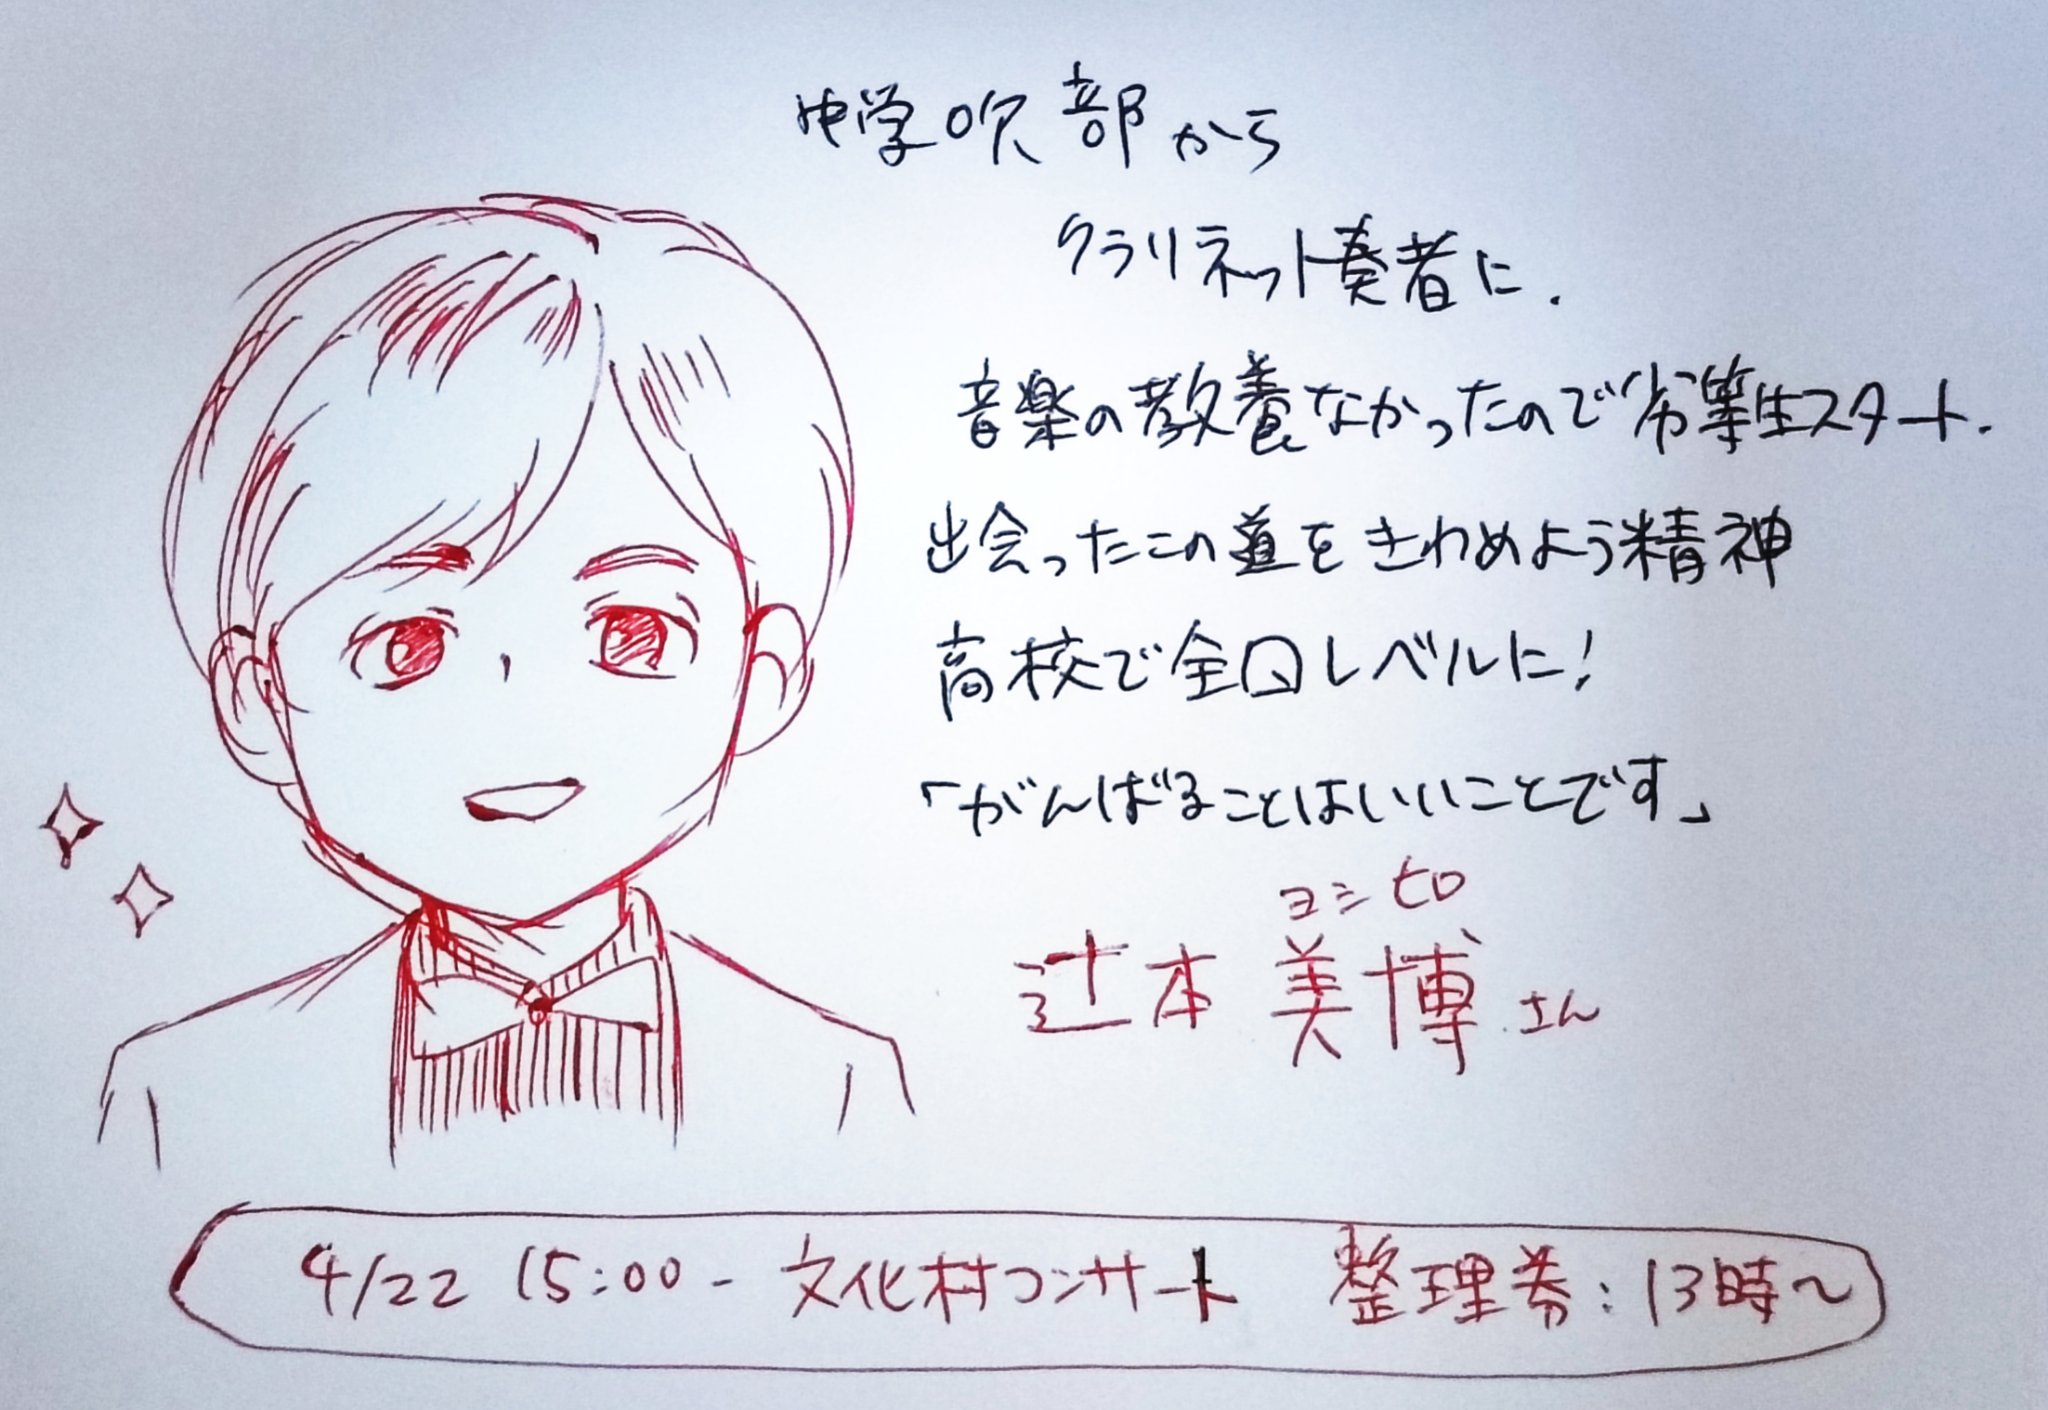 中学吹部から
クラリネット奏者に.
音楽の教養なかったので劣等生スタート.
出会ったこの道をきわめよう精神
高校で全国レベルに!
「がんばることはいいことです」
ヨシヒロ
辻本美博さん
4/22 15:00- 文化村コンサート 整理券:13時〜